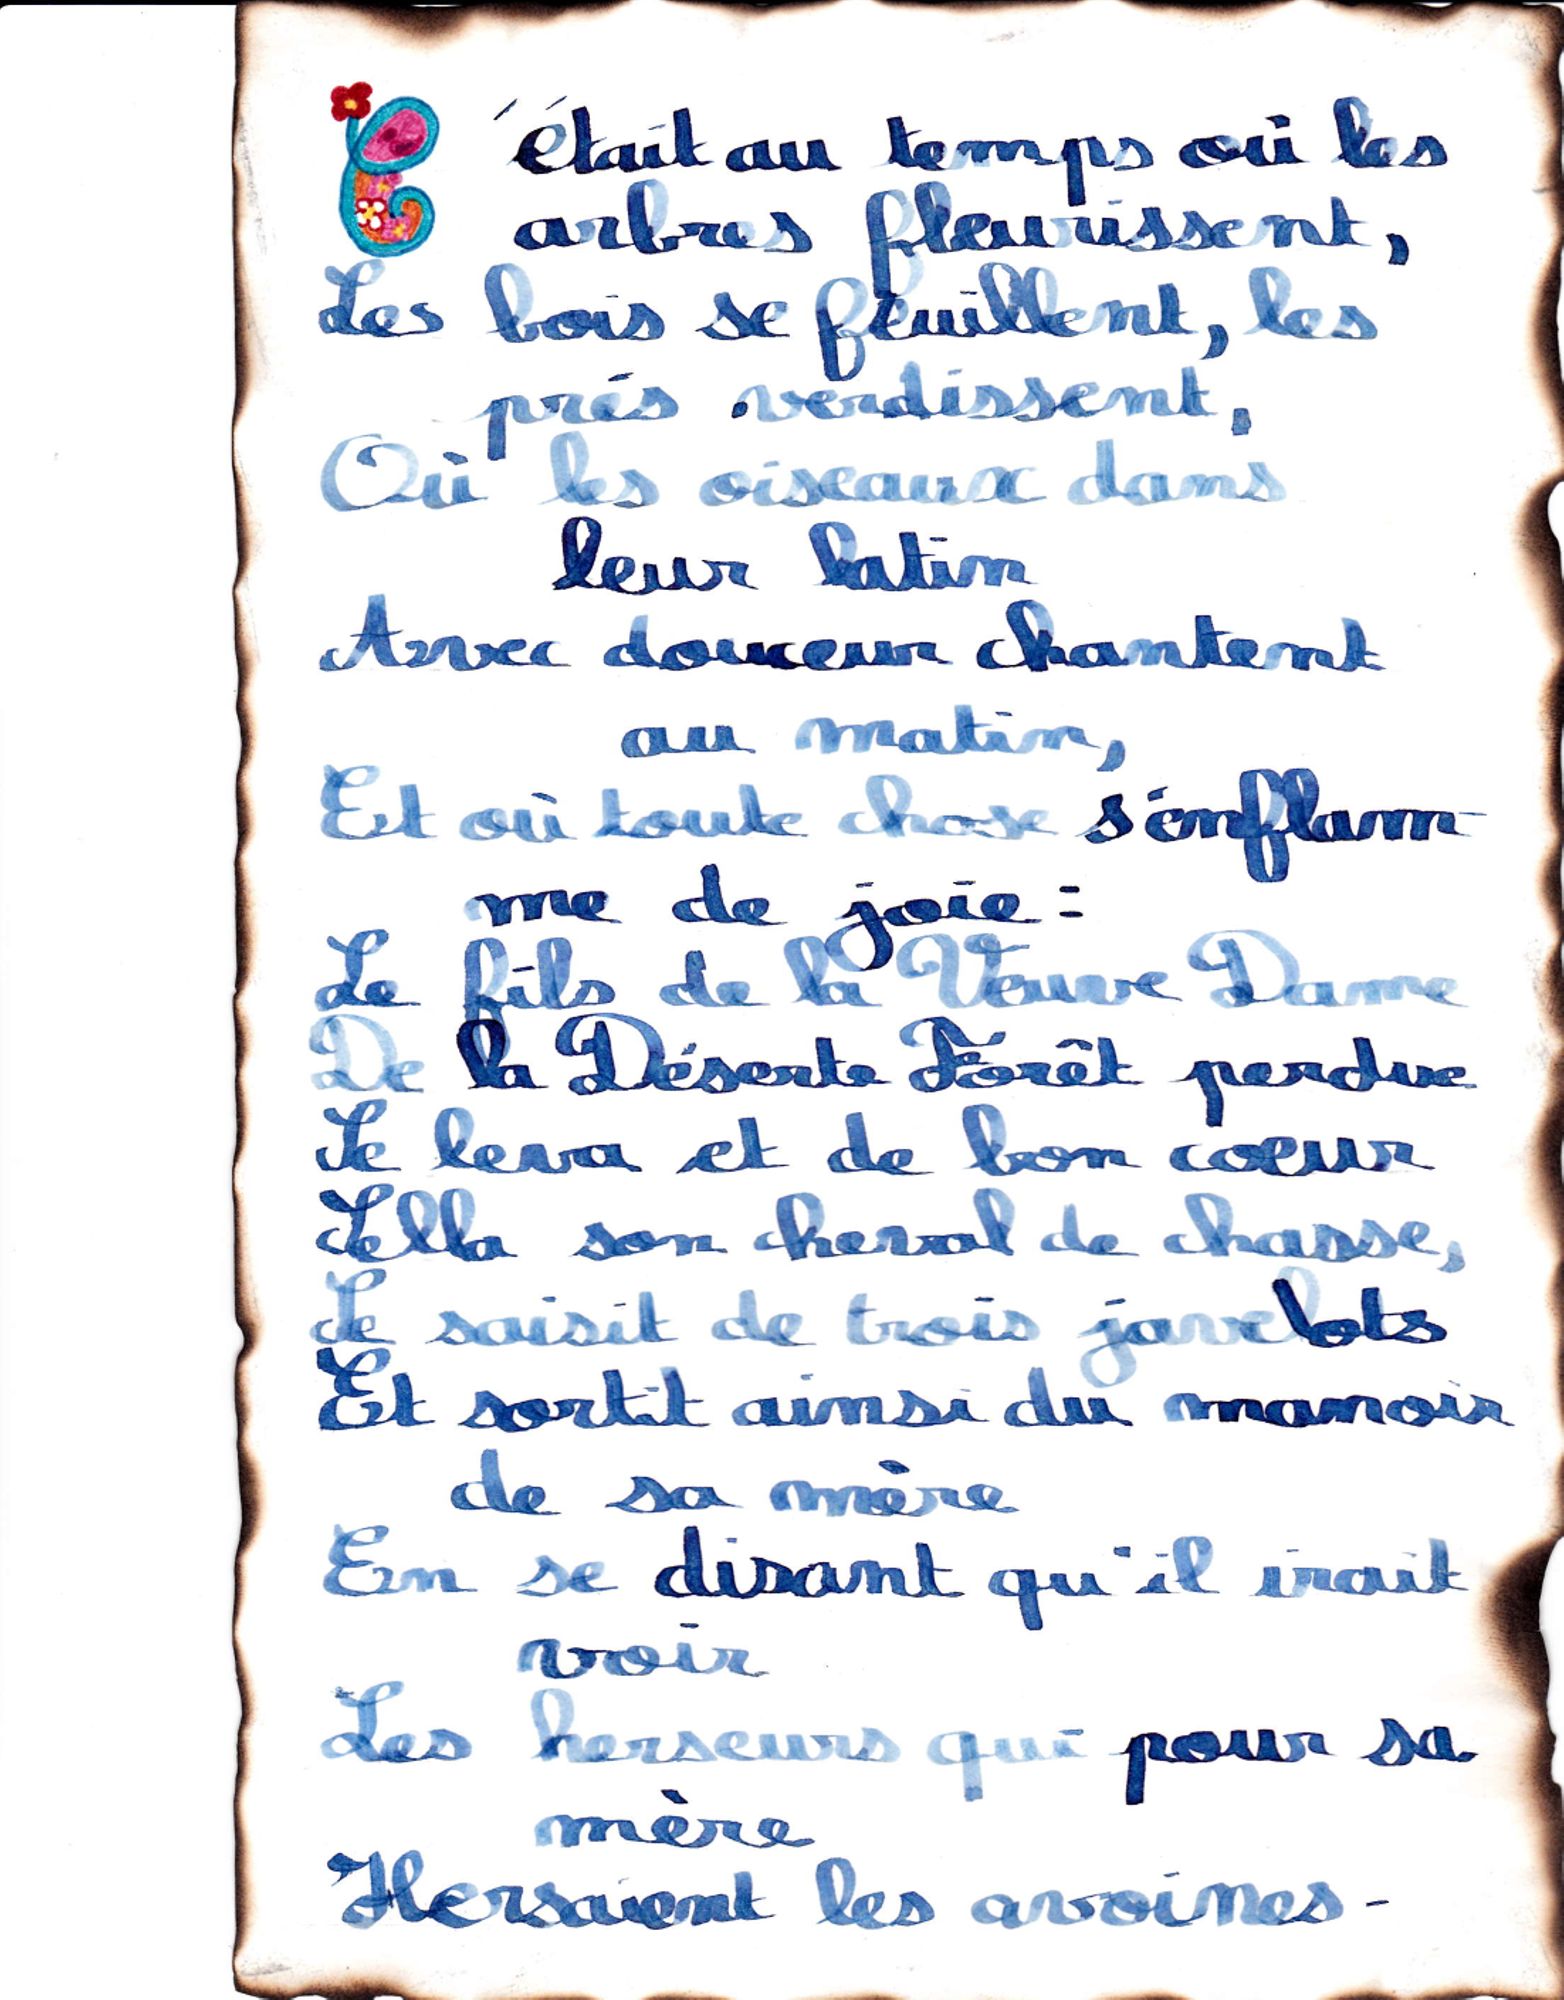 C'était au temps où les
arbres fleurissent,
Les bois se feuillent, les
prés verdissent,
Où les oiseaux dans
leur latin
Avec douceur chantent
au matin,
Et où toute chose s'enflam-
me de joie :
Le fils de la Veuve Dame
De la Déserte Forêt perdue
Se leva et de bon coeur
Sella son cheval de chasse,
Se saisit de trois javelots
Et sortit ainsi du manoir
de sa mère
En se disant qu'il irait
voir
Les herseurs qui pour sa
mère
Hersaient les avoines-